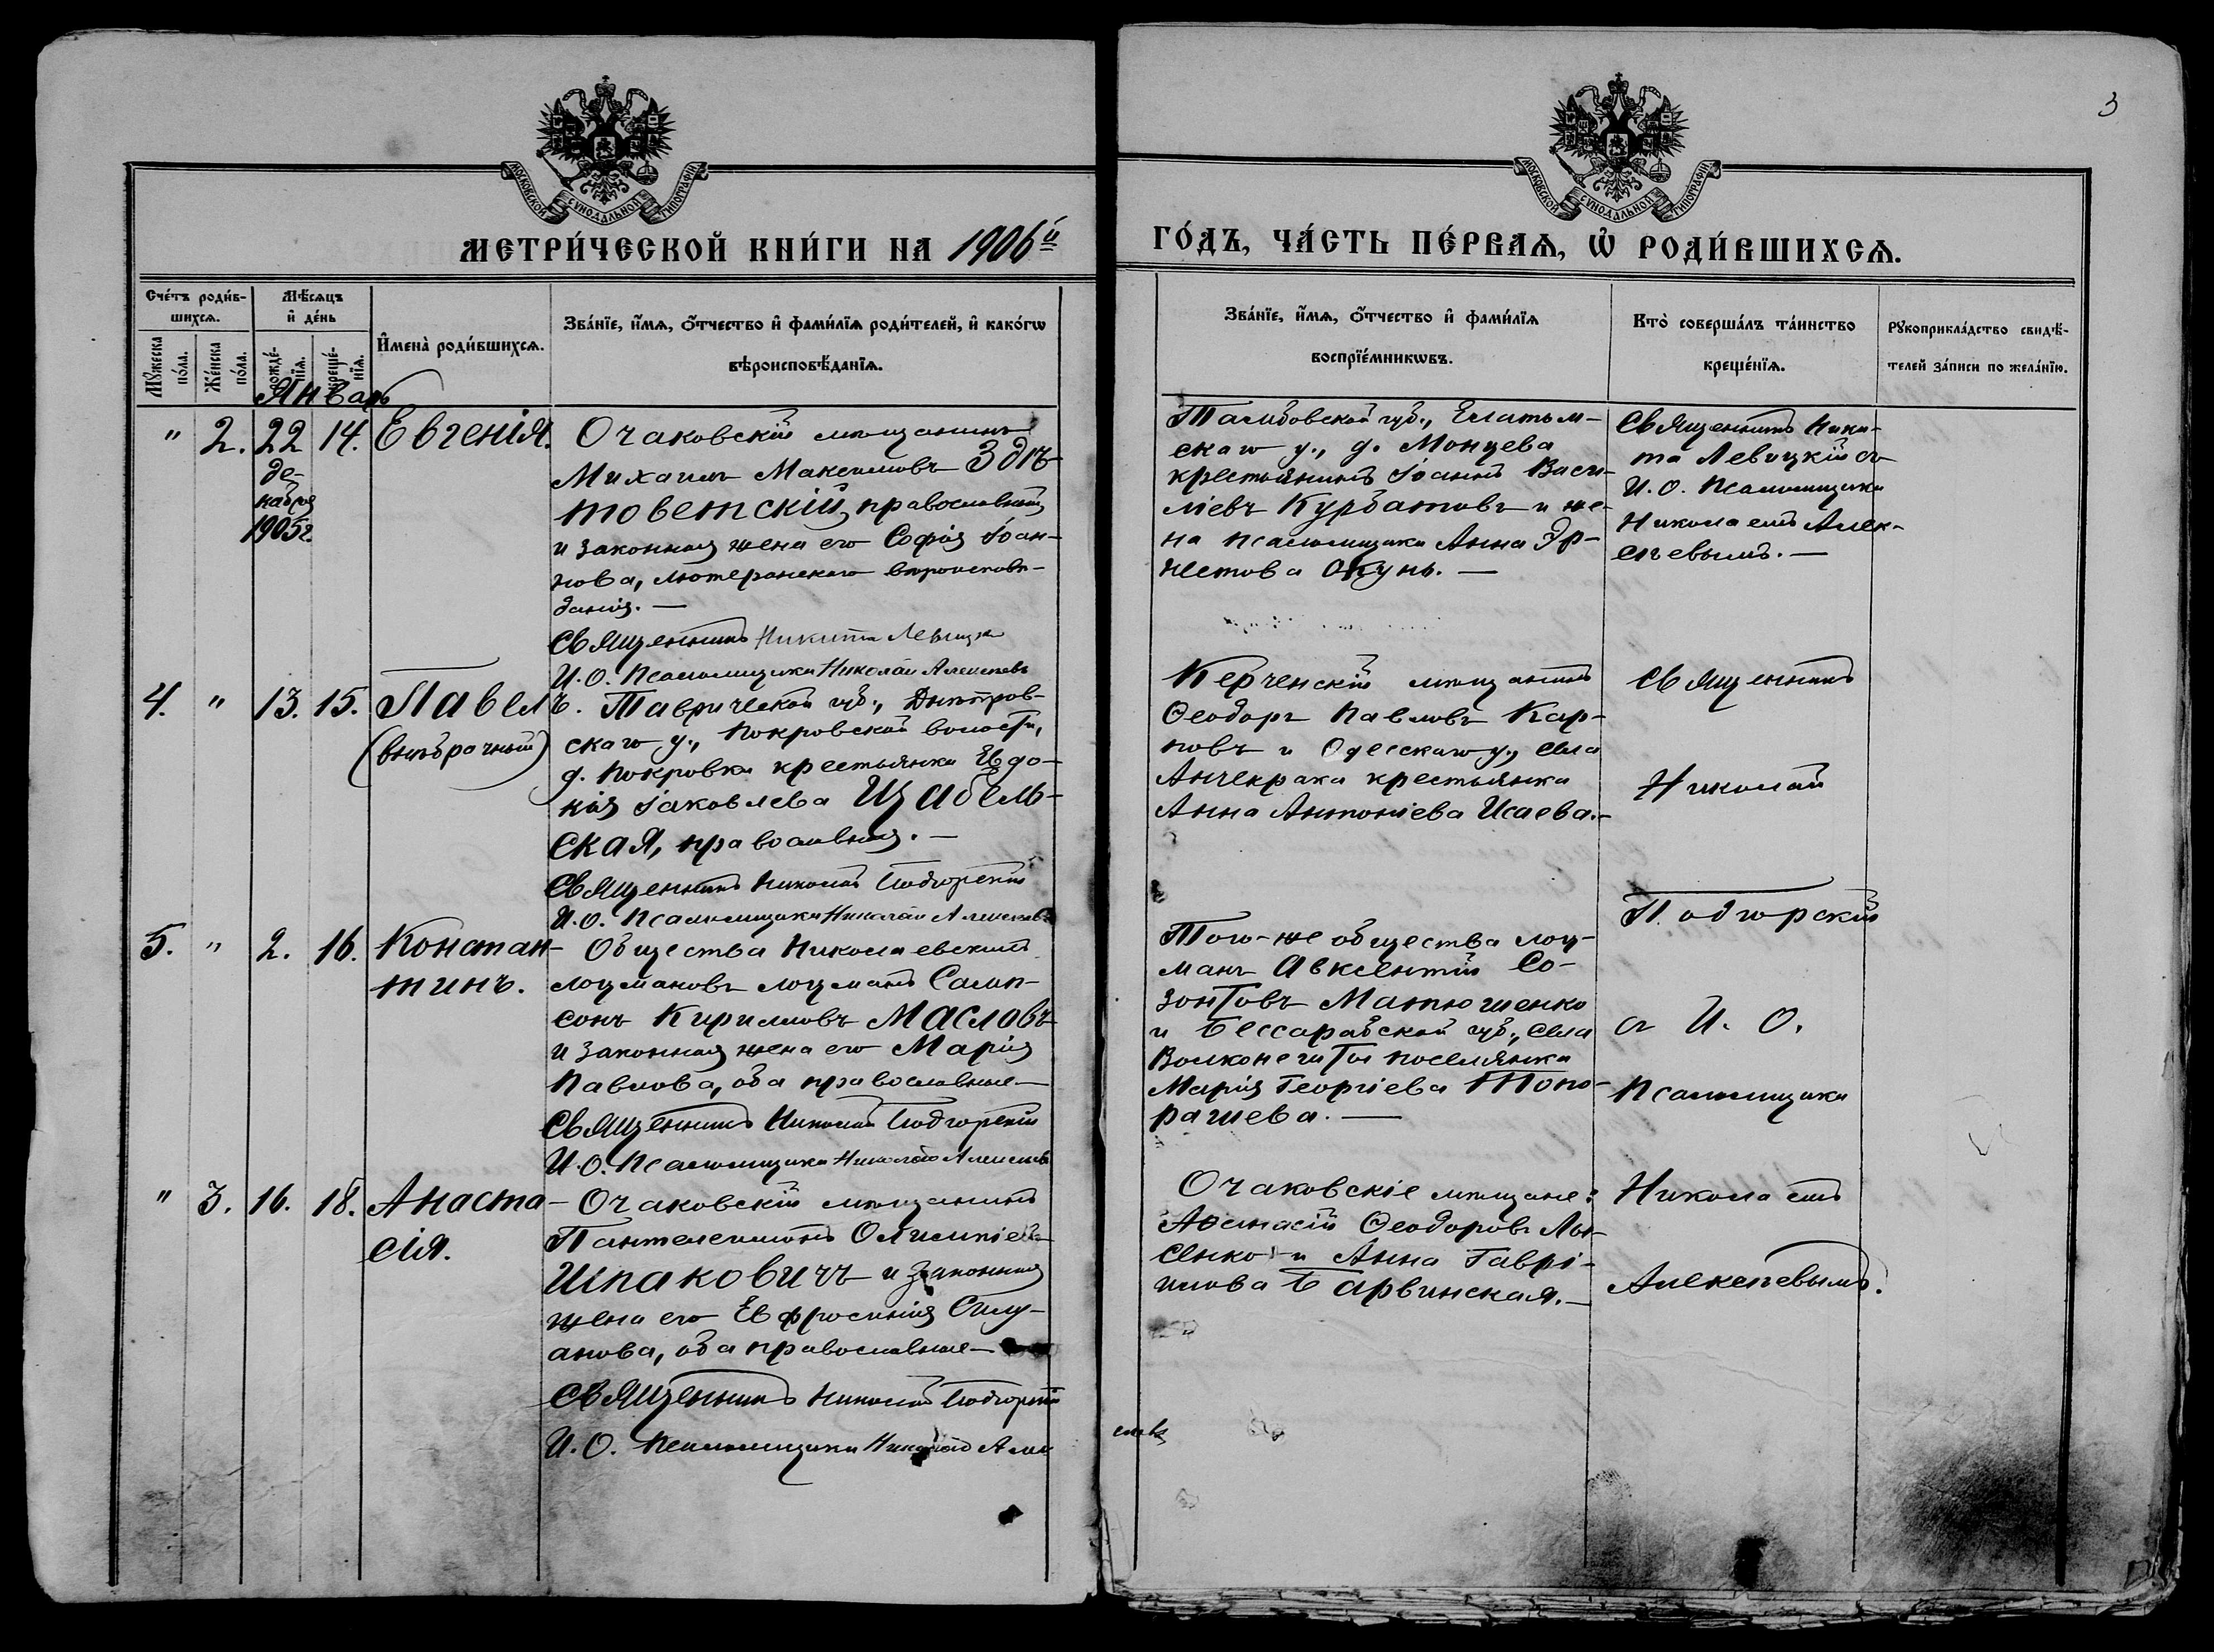 3
МОСКОВСКОЙ СѴНОДАЛЬНОЙ ТИПОГРАФІИ
МОСКОВСКОЙ СѴНОДАЛЬНОЙ ТИПОГРАФІИ
МЕТРИ́ЧЕСКОЙ КНИ́ГИ НА 1906й
ГО́ДЪ, ЧА́СТЬ ПЕ́РВАѦ, Ѡ҆ РОДИ́ВШИХСѦ.
Сче́тъ роди́в-
шихсѧ.
Мꙋ́жеска по́ла.
Же́нска по́ла.
Мѣ́сѧцъ
и҆ де́нь
рожде́-
нїѧ.
креще́-
нїѧ.
И҆мена̀ роди́вшихсѧ.
Зва́нїе, и҆́мѧ, ѻ҆́тчество и҆ фами́лїѧ роди́телей, и҆ како́гѡ
вѣроисповѣ́данїѧ.
Зва́нїе, и҆́мѧ, ѻ҆́тчество и҆ фами́лїѧ
воспрїе́мникѡвъ.
Кто̀ соверша́лъ та́инство
креще́нїѧ.
Рꙋкоприкла́дство свидѣ́-
телей за́писи по жела́нїю.
Январь
" 2. 22 14. Евгенія.
де-
кабря
1905 г.
Очаковскій мѣщанинъ
Михаилъ Максимовъ Здѣ-
товетскій, православный
и законная жена его Софія Іоан-
нова, лютеранскаго вѣроисповѣ-
данія. —
Священникъ Никита Левицкій
И. О. Псаломщика Николай Алексѣевъ
Тамбовской губ., Елатьм-
скаго у., д. Монцева
крестьянинъ Іоаннъ Васи-
ліевъ Курбатовъ и же-
на псаломщика Анна Эр-
нестова Окунь. —
Священникъ Ники-
та Левицкій съ
И. О. Псаломщика
Николаемъ Алек-
сѣевымъ. —
4. " 13. 15. Павелъ.
(внѣбрачный)
Таврической губ., Днѣпров-
скаго у., Покровской волости,
д. Покровки крестьянка Евдо-
кія Іаковлева Изабель-
ская, православная. —
Священникъ Николай Подгорскій
И. О. Псаломщика Николай Алексѣевъ
Керченскій мѣщанинъ
Ѳеодоръ Павловъ Кар-
повъ и Одесскаго у., села
Анчекрака крестьянка
Анна Антоніева Исаева. —
Священникъ
Николай
Подгорскій
съ И. О.
Псаломщика
Николаемъ
Алексѣевымъ.
5. " 2. 16. Констан-
тинъ.
Общества Николаевскихъ
лоцмановъ лоцманъ Самп-
сонъ Кирилловъ Масловъ
и законная жена его Марія
Павлова, оба православные —
Священникъ Николай Подгорскій
И. О. Псаломщика Николай Алексѣевъ
Того-же общества лоц-
манъ Авксентій Со-
зонтовъ Матюшенко
и Бессарабской губ., села
поселянка
Марія Георгіева Топо-
рашева. —
" 3. 16. 18. Анаста-
сія.
Очаковскій мѣщанинъ
Пантелеимонъ Олимпіевъ
Шпаковичъ и законная
жена его Евфросинія Силу-
анова, оба православные —
Священникъ Николай Подгорскій
И. О. Псаломщика Николай Алексѣевъ
Очаковскіе мѣщане:
Аѳанасій Ѳеодоровъ Лы-
сенко и Анна Гаврі-
илова Барвинская. —